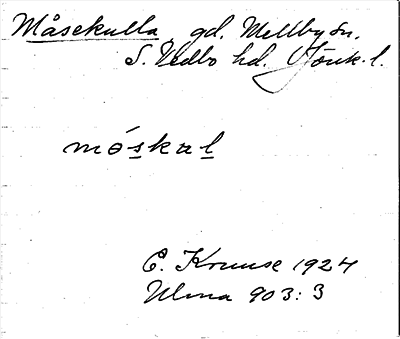 Måsekulla, gd. Mellby sn.
S. Vedbo hd. Jönk. l.
móskal
E. Kruuse 1924
Ulma 903:3